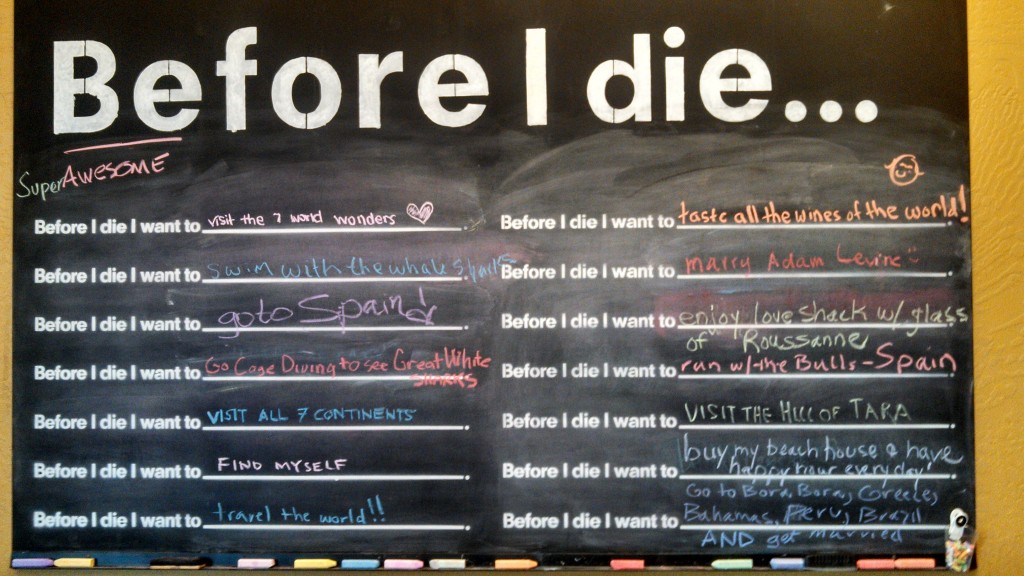 Before I die...
Super AWESOME
Before I die I want to visit the 7 world wonders.
Before I die I want to swim with the whale sharks.
Before I die I want to go to Spain!.
Before I die I want to Go Cage Diving to see Great White
Sharks.
Before I die I want to VISIT ALL 7 CONTINENTS.
Before I die I want to FIND MYSELF.
Before I die I want to travel the world!!.
Before I die I want to taste all the wines of the world!.
Before I die I want to marry Adam Levine.
Before I die I want to enjoy love shack w/ glass
of Roussanne.
Before I die I want to run w/the Bulls - Spain.
Before I die I want to VISIT THE HILL OF TARA.
Before I die I want to buy my beach house & have
happy hour everyday!.
Go to Bora Bora, Greece,
Before I die I want to Bahamas, Peru, Brazil.
AND get married